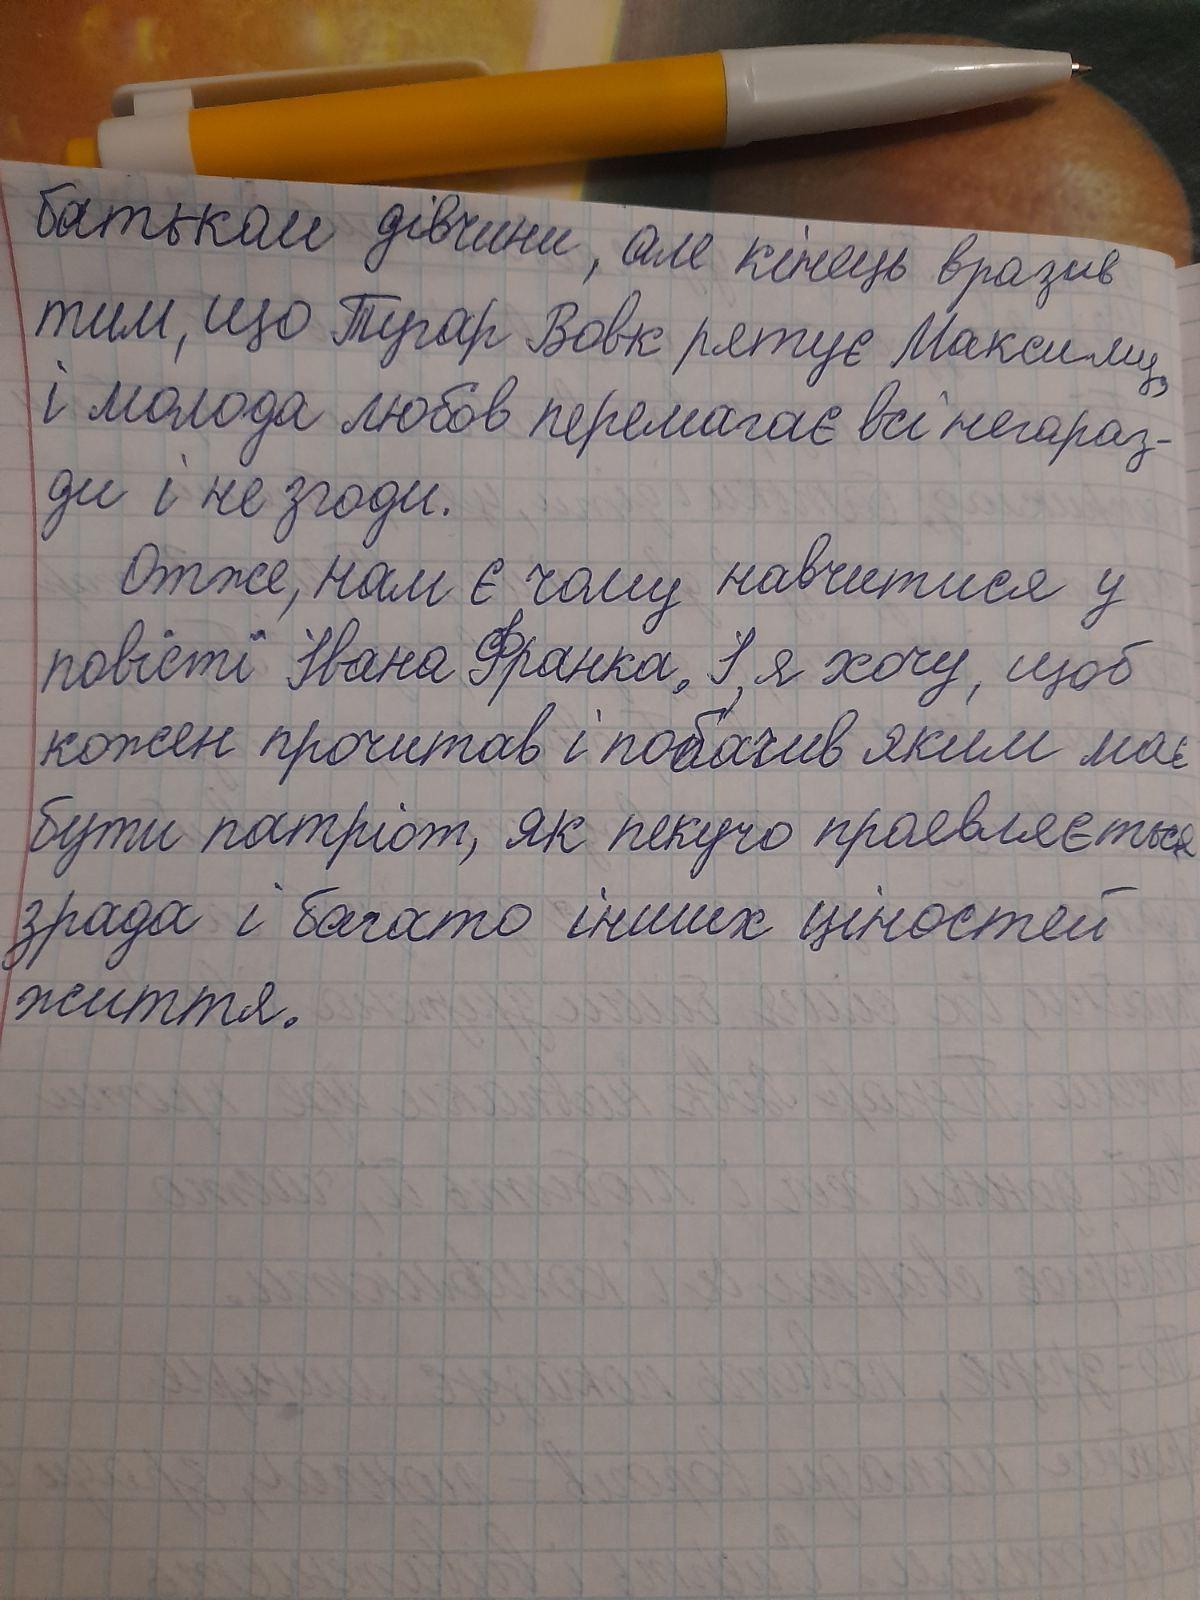 батьком дівчини, але кінець вразив
тим, що Тугар Вовк рятує Максима,
і молода любов перемагає всі негараз-
ди і не згоди.
Отже, нам є чому навчитися у
повісті Івана Франка. І, я хочу, щоб
кожен прочитав і побачив яким має
бути патріот, як пекучо проявляється
зрада і багато інших ціностей
життя.